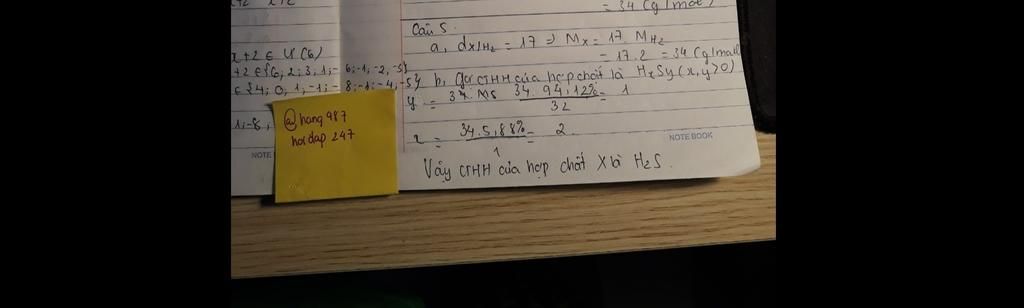 = 34 (g/mol)
x+2 ∈ Ư(6)
+2 ∈ {6; 2; 3; 1; -6; -1; -2; -3}
∈ {4; 0; 1; -1; -8; -3; -4; -5}
1; -8,
@hang987
hoidap 247
NOTE
Câu 5.
a, dX/H₂ = 17 ⇒ MX = 17. MH₂
= 17.2 = 34 (g/mol)
b, Gọi CTHH của hợp chất là HxSy (x,y>0)
y = 34. 94,12% / 32 = 1
x = 34.5,88% / 1 = 2.
NOTEBOOK
Vậy CTHH của hợp chất X là H₂S.